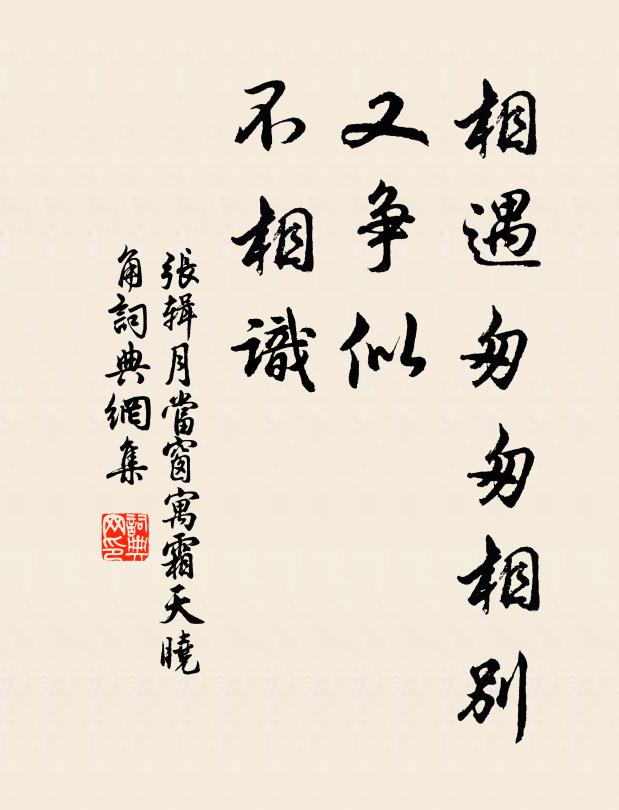 相遇匆匆相別
又争似
不相識
張辑月當窗寓霜天曉
角詞典網集
詞典
网印